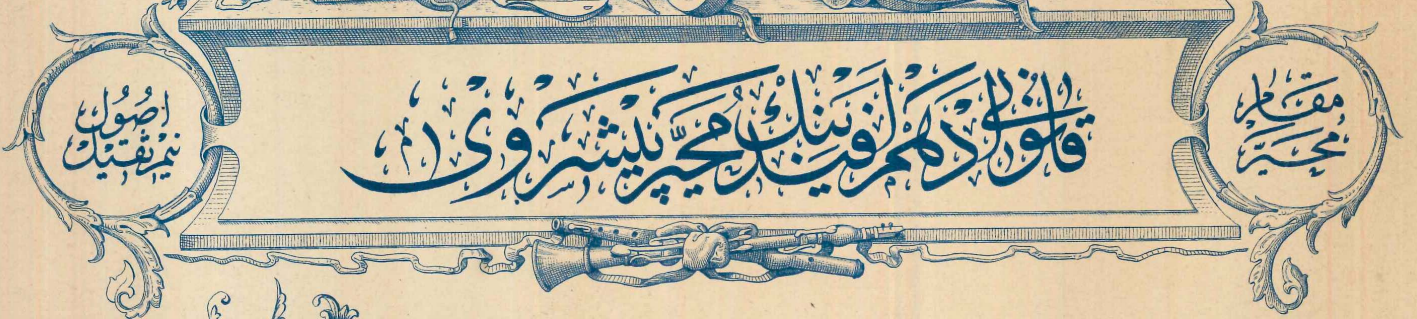 مقام
محير
قانونى ادهم افندينك محير پيشروى
اصول
نيم ثقيل